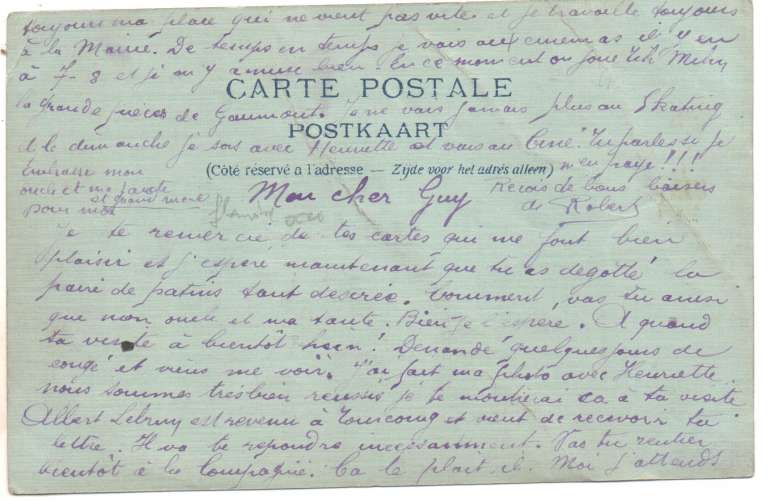 CARTE POSTALE
POSTKAART
(Côté réservé a l'adresse — Zijde voor het adrès alleen)
Mon cher Guy
Je te remercie de tes cartes qui me font bien
plaisir et j'espere maintenant que tu as degotté la
paire de patins tant desirée. Comment vas tu ainsi
que mon oncle et ma tante. Bien je l'espere. A quand
ta visite à bientôt hein! Demande quelques jours de
congé et viens me voir. J'ai fait ma photo avec Henriette
nous sommes très bien reussis je te montrerai ca à ta visite
Albert Lebrun est revenu à Tourcoing et vient de recevoir ta
lettre. Il va te repondre incessamment. Vas tu rentrer
bientôt à la Compagnie. Ca te plait il. Moi j'attends
toujours ma place qui ne vient pas vite et je travaille toujours
à la Mairie. De temps en temps je vais aux cinemas il y en
à 7-8 et je m'y amuse bien. En ce moment on joue
la grande pièces de Gaumont. Je ne vais jamais plus au Skating
et le dimanche je sors avec Henriette et vais au Ciné. Tu parles si je
m'en paye!!!
Embrasse mon
oncle et ma tante
et grand mère
pour moi
Recois de bons baisers
de Robert